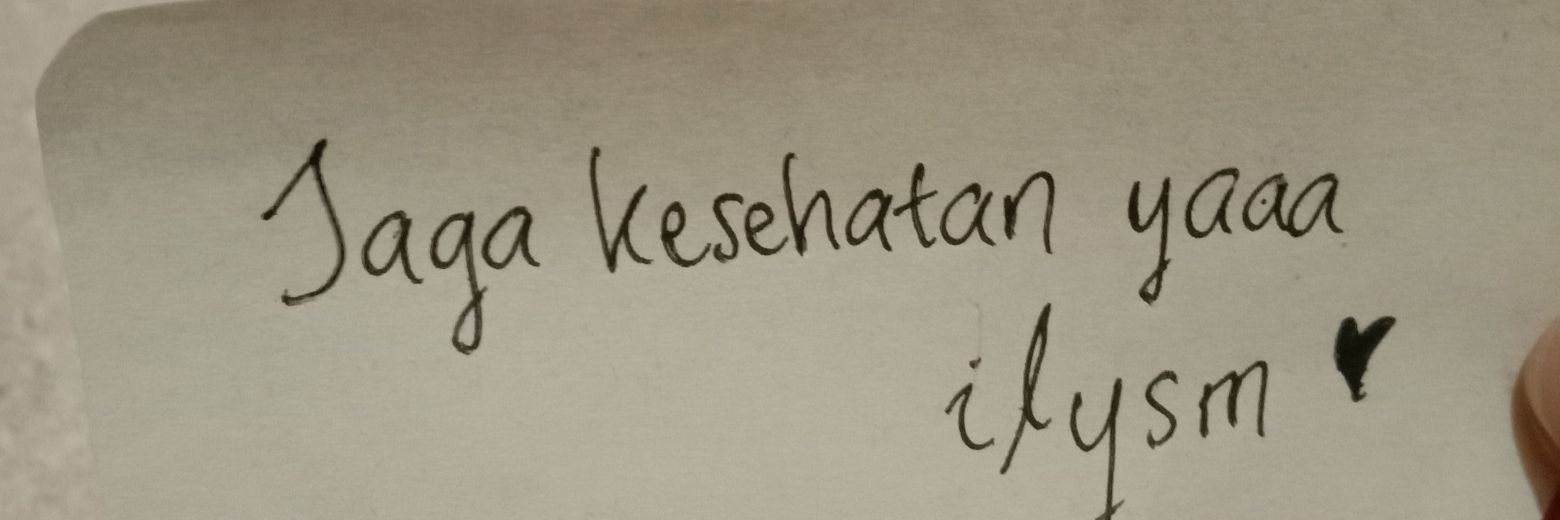 Jaga kesehatan yaaa
ilysm ♥